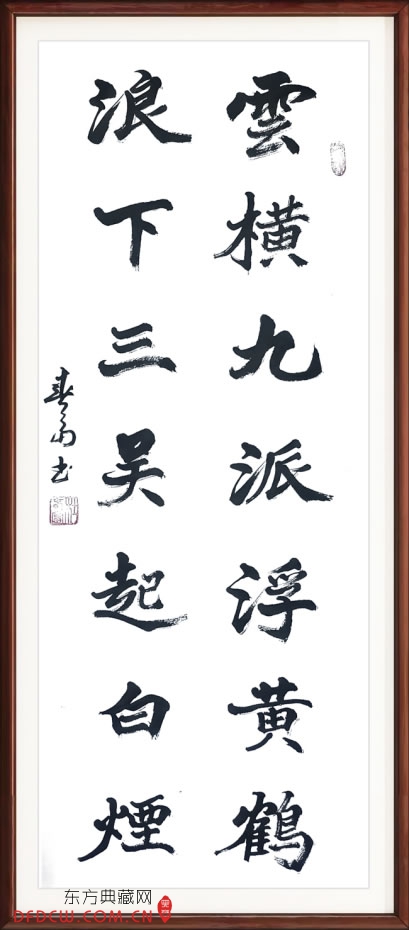 雲横九派浮黄鶴
浪下三吴起白煙
春雨书
东方典藏网
DFDCW.COM.CN